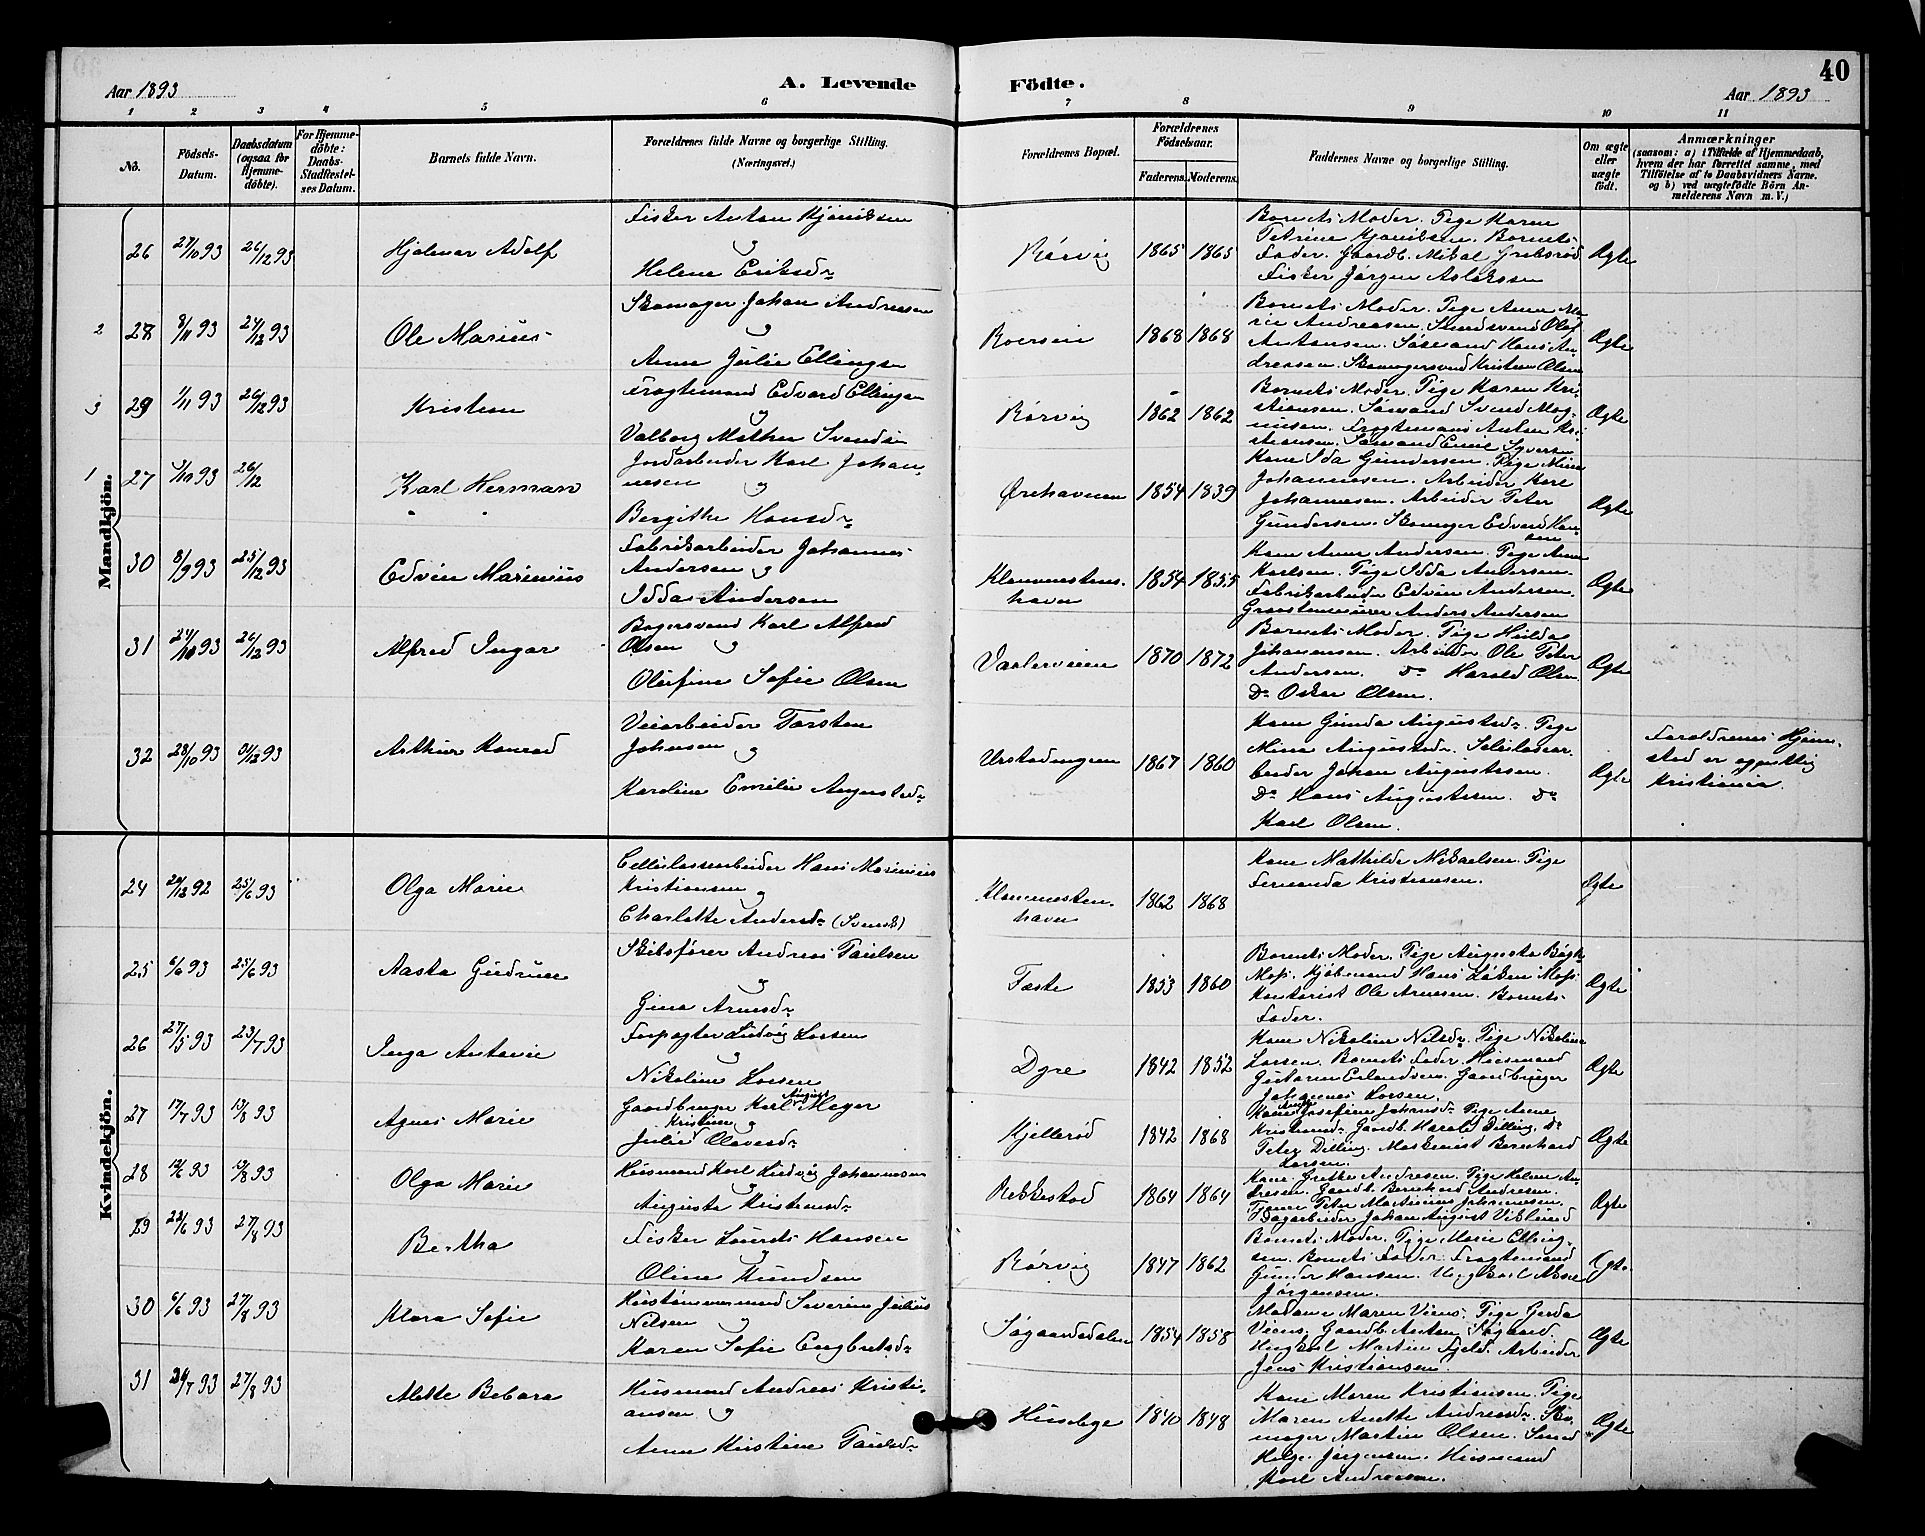 40
Aar 1893
A. Levende
Födte.
Aar 1893
1 2 3 4 5 6 7 8 9 10 11
No.
Födsels-Datum.
Daabsdatum (ogsaa for Hjemmedöbte).
For Hjemmedöbte: Daabs-Stadfæstelses Datum.
Barnets fulde Navn.
Forældrenes fulde Navne og borgerlige Stilling. (Næringsvei.)
Forældrenes Bopæl.
Forældrenes Födselsaar.
Faderens. Moderens.
Faddernes Navne og borgerlige Stilling.
Om ægte eller uægte födt.
Anmærkninger
(saasom: a) i Tilfælde af Hjemmedaab, hvem der har forrettet samme, med Tilföielse af to Daabsvidners Navne. og b) ved uægtefödte Börn Anmelderens Navn m. V.)
Mandkjön.
26 27/10 93 26/12 93 Hjalmar Adolf
Fisker Anton Kjønigsen
og
Helene Eriksd.
Rørvig 1865 1865
Barnets Moder. Pige Karen
Petrine Kjønigsen. Barnets
Fader. Gaardb. Mikal Grebsrød
Fisker Jørgen Aslaksen
Ægte
2 28 8/11 93 24/12 93 Ole Marius
Skomager Johan Andresen
og
Anne Julie Ellings
1868 1868
Barnets Moder. Pige Anne Marie Andreasen. Olaf
Antonsen. Sømand Hans Andreasen. Skomagersvend Kristian Olsen
Ægte
3 29 1/11 93 26/12 93 Kristian
Fragtemand Edvard Ellingsen
og
Valborg Mathea Svends
Rørvig 1862 1862
Barnets Moder. Pige Karen Kristiansen. Sømand Svend Magnusen. Fragtemand Anton Kristiansen. Sømand Emil Syversen
Ægte
1 27 /10 93 26/12 Karl Herman
Jordarbeider Karl Johannesen og
Bergithe Hansd.
Ørehavnen 1854 1839
Kone Ida Gundersen. Pige Mina
Johannesen. Arbeider Karl
Johannesen. Arbeider Peter
Gundersen. Skomager Edvard Hansen
Ægte
30 8/9 93 25/12 93 Edvin Marinius
Fabrikarbeider Johannes
Andersen og
Idda Andersen
Klommestenshavn 1854 1855
Kone Anne Andersen. Pige Anna
Karlsen. Pige Idda Andersen.
Fabrikarbeider Edvin Andersen.
Graastensmurer Anders Andersen
Ægte
31 24/10 93 26/12 93 Alfred Ingar
Bagersvend Karl Alfred
Olsen og
Olufine Sofie Olsen
Vaalerveien 1870 1872
Barnets Moder. Pige Hulda
Johansen. Arbeider Ole Peter
Andersen. Do Harald Olsen
Do Oskar Olsen.
Ægte
32 28/10 93 31/12 93 Arthur Konrad
Veiarbeider Torsten
Johnsen og
Karoline Emilie Augustsd.
1867 1860
Kone Gunda Augustsd. Pige
Mina Augustsd. Celluloosearbeider Johan Augustesen.
Do Hans Augustesen. Do
Karl Olsen.
Ægte
Forældrenes Hjemsted er egentlig
Kristiania.
Kvindekjön.
24 26/12 92 25/6 93 Olga Marie
Celluloosearbeider Hans Marinius
Kristiansen og
Charlotte Andersd. (Svensk)
Klommestenhavn 1862 1868
Kone Mathilde Mikaelsen. Pige
Fernanda Kristiansen.
Ægte
25 6/6 93 25/6 93 Aasta Gudrun
Skibsfører Andreas Paulsen
og
Gina Arnesd.
1853 1860
Barnets Moder. Pige Augusta Bøgh
Moss. Kjøbmand Hans Løken Moss
Kontorist Ole Arnesen. Barnets
Fader.
Ægte
26 27/5 93 23/7 93 Inga Antonie
Forpagter Ludvig Larsen
og
Nikoline Larsen
Dyre 1842 1852
Kone Nikoline Nilsd. Pige Nikoline
Larsen. Barnets Fader. Husmand
Gaardbruger
Johannes Larsen.
Ægte
27 17/7 93 13/8 93 Agnes Marie
Gaardbruger Karl August Meyer
og
Julie Kristine Olavesd.
Kjellerød 1842 1868
Kone Anne Josefine Johansd. Pige Anne
Kristiansd. Gaardb. Harald Dilling. Do
Peter Dilling. Maskinist Bernhard
Larsen.
Ægte
28 /6 93 /8 93 Olga Marie
Husmand Karl Ludvig Johannesen
og
Augusta Kristiansd.
Rekkestad 1864 1864
Kone Grethe Andresen. Pige Helene Andresen. Gaardb. Bernhard Andresen.
Peter Martinius Johannesen.
Dagarbeider Johan August Viklund
Ægte
29 22/6 93 27/8 93 Bertha
Fisker Laurits Hansen
og
Oline Knudsen
Rørvig 1847 1862
Barnets Moder. Pige Marie Ellingsen. Barnets Fader. Fragtemand
Gunder Hansen. Ungkarl
Jørgensen.
Ægte
30 6/6 93 27/8 93 Klara Sofie
Hustømmermand Severin Julius
Nilsen og
Karen Sofie Engbretsd.
Søgaardsdalen 1854 1858
Madame Maren Viens. Pige Gerda
Viens. Gaardb. Anton Søgaard.
Ungkarl Martin Fjeld. Arbeider
Jens Kristiansen.
Ægte
31 24/7 93 27/8 93 Alette Bebara
Husmand Andreas Kristiansen og
Anne Kirstine Paulsd.
Husebye 1840 1848
Kone Maren Kristiansen. Pige
Maren Anette Andreasd. Skomager Martin Olsen. Smed
Helge Jørgensen. Husmand
Karl Andreasen.
Ægte